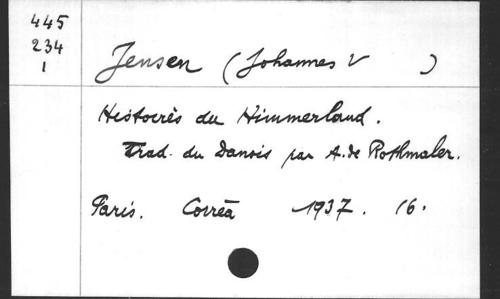 445
234
1
Jensen (Johannes V )
Histoires du Himmerland.
Trad. du Danois par A. de Rothmaler.
Paris. Corrêa 1937. 16.